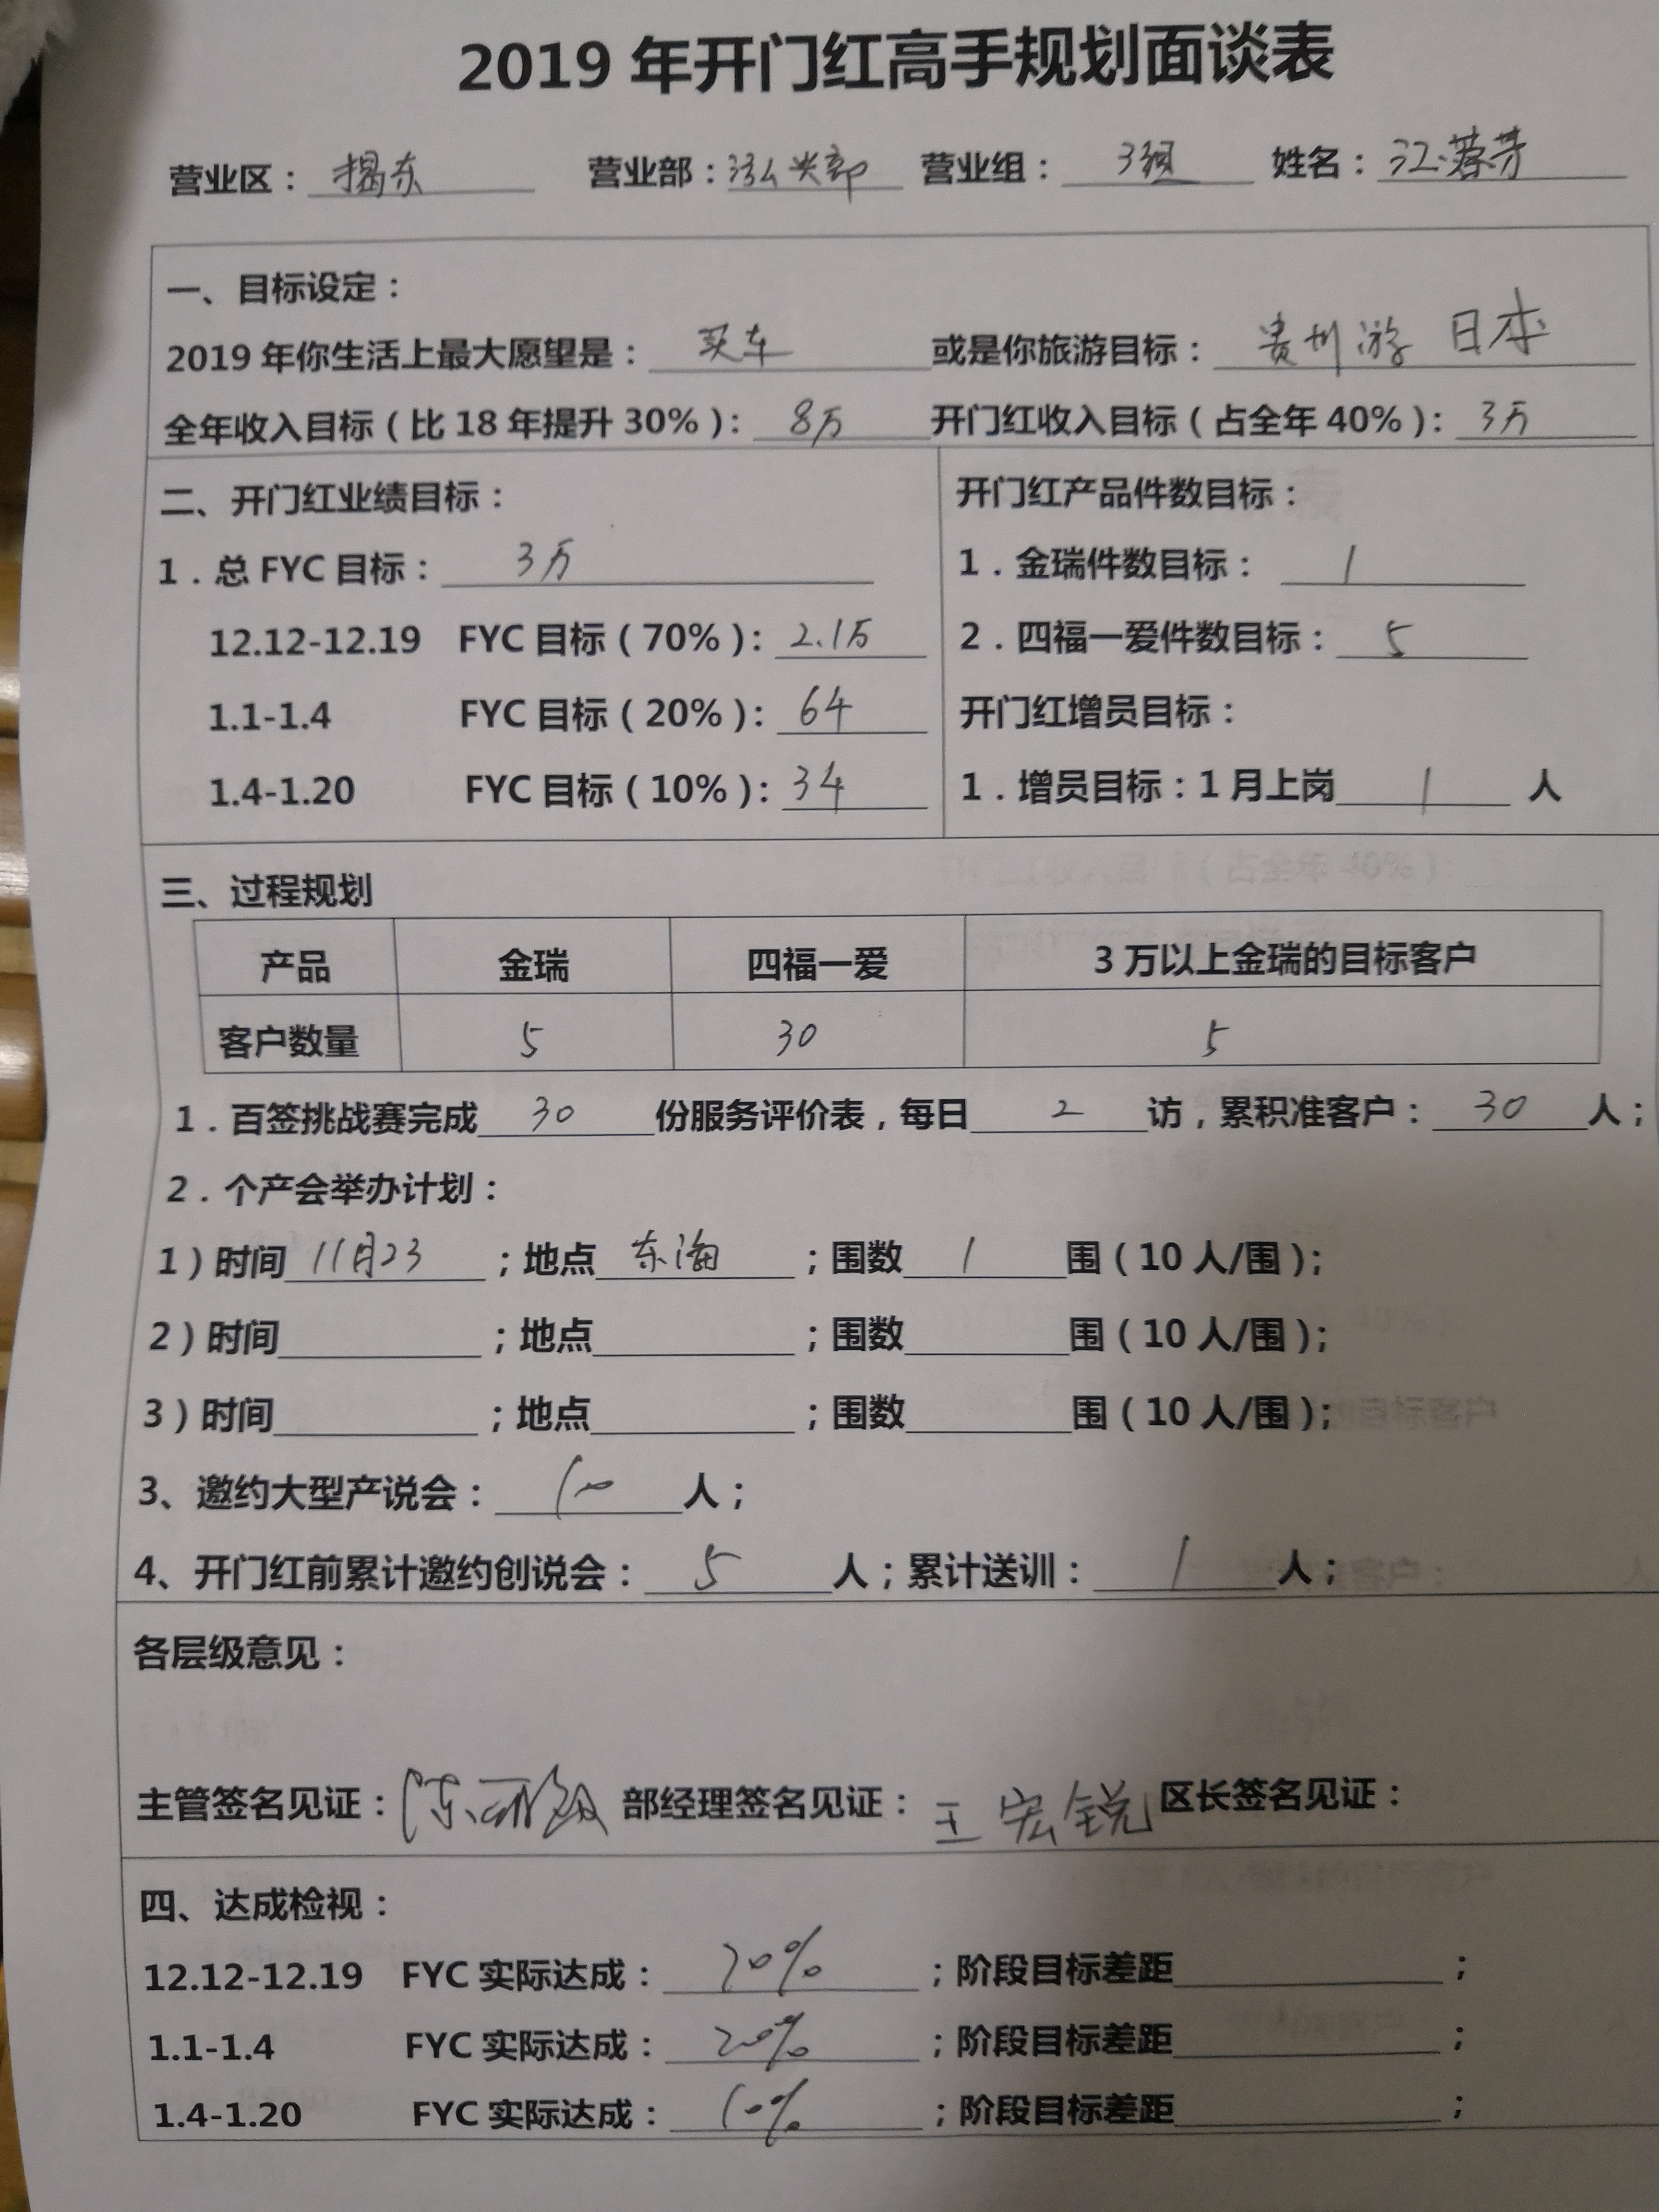 2019 年开门红高手规划面谈表
营业区：揭东 营业部：泓兴部 营业组：3组 姓名：江蓉芳
一、目标设定：
2019 年你生活上最大愿望是：买车 或是你旅游目标：贵州游 日本
全年收入目标（比 18 年提升 30%）：8万 开门红收入目标（占全年 40%）：3万
二、开门红业绩目标：
1．总 FYC 目标：3万
12.12-12.19 FYC 目标（70%）：2.1万
1.1-1.4 FYC 目标（20%）：64
1.4-1.20 FYC 目标（10%）：34
开门红产品件数目标：
1．金瑞件数目标：1
2．四福一爱件数目标：5
开门红增员目标：
1．增员目标：1 月上岗 1 人
三、过程规划
产品 金瑞 四福一爱 3 万以上金瑞的目标客户
客户数量 5 30 5
1．百签挑战赛完成 30 份服务评价表，每日 2 访，累积准客户：30 人；
2．个产会举办计划：
1）时间 11月23 ；地点 东海 ；围数 1 围（10 人/围）；
2）时间 ；地点 ；围数 围（10 人/围）；
3）时间 ；地点 ；围数 围（10 人/围）；
3、邀约大型产说会：10 人；
4、开门红前累计邀约创说会：5 人；累计送训：1 人；
各层级意见：
主管签名见证：陈 部经理签名见证：王宏锐 区长签名见证：
四、达成检视：
12.12-12.19 FYC 实际达成：70% ；阶段目标差距 ；
1.1-1.4 FYC 实际达成：20% ；阶段目标差距 ；
1.4-1.20 FYC 实际达成：10% ；阶段目标差距 ；